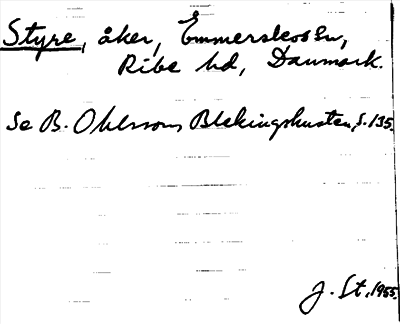 Styre, åker, Emmerskov sn,
Ribe hd, Danmark.
Se B. Ohlsson, Blekingskusten, s. 135.
J. St, 1955.